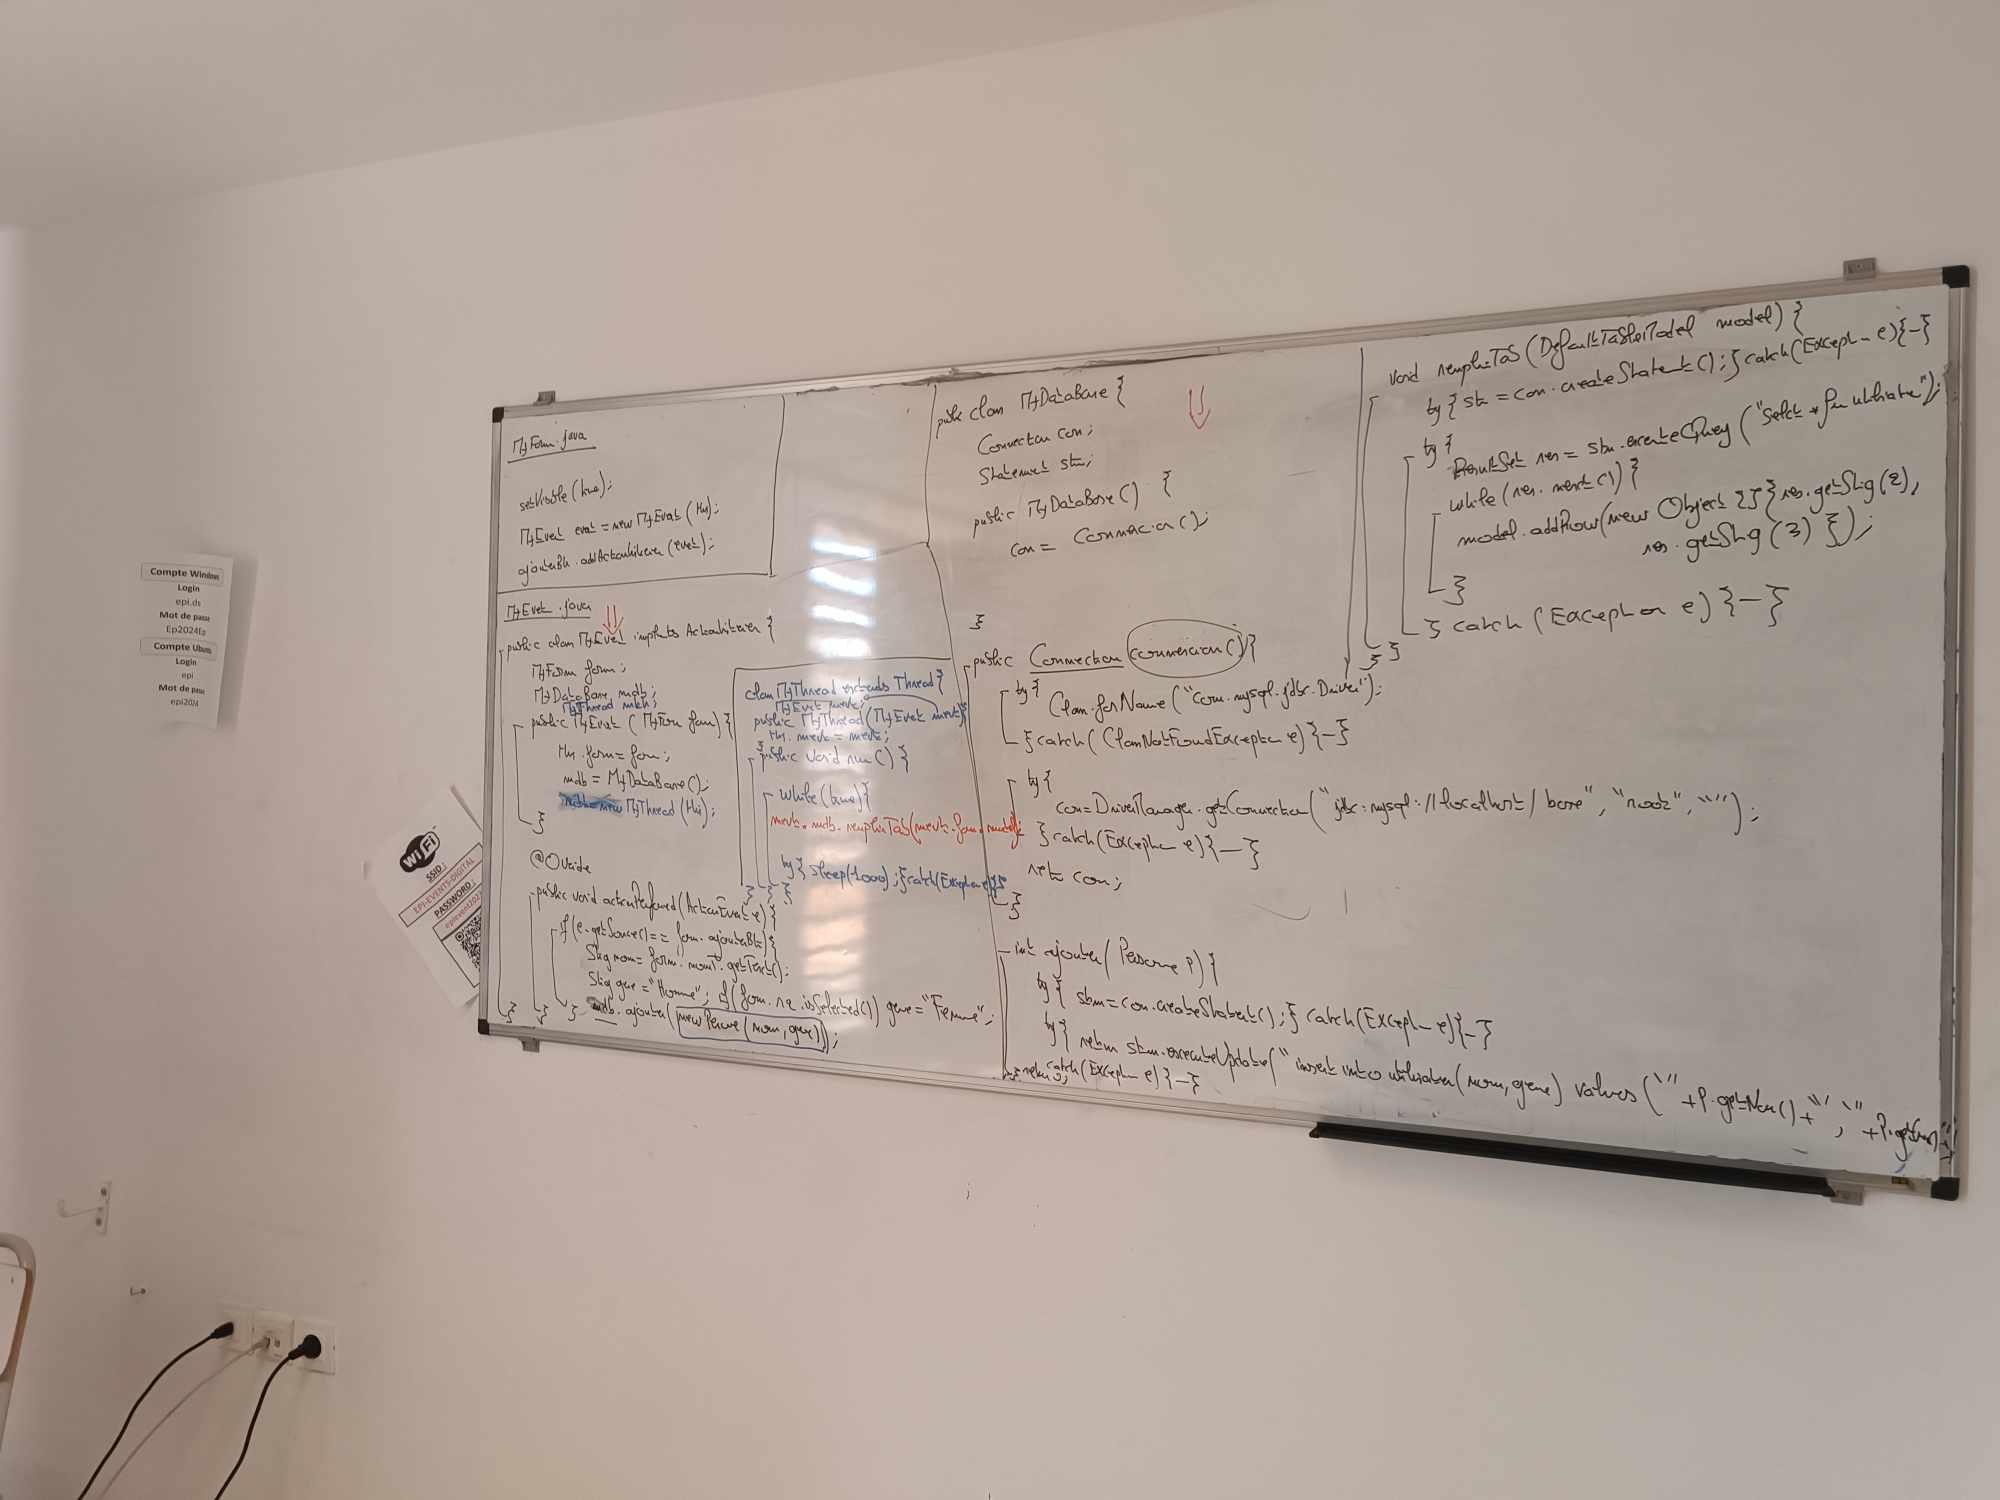 MyForm.java
setVisible(true);
MyEvent event = new MyEvent(this);
ajouterBt.addActionListener(event);
MyEvent.java
public class MyEvent implements ActionListener {
MyForm form;
MyDataBase mdb;
MyThread mth;
public MyEvent (MyForm form) {
this.form = form;
mdb = MyDataBase();
new MyThread (this);
}
@Override
public void actionPerformed(ActionEvent e) {
if(e.getSource() == form.ajouterBt){
String nom = form.nomT.getText();
String genre = "Homme"; if(form.r2.isSelected()) genre = "Femme";
mdb.ajouter(new Personne (nom, genre));
} } }
class MyThread extends Thread {
MyEvent mevt;
public MyThread (MyEvent mevt){
this.mevt = mevt;
}
public void run() {
while(true){
mevt.mdb.remplirTab(mevt.form.model);
try{ sleep(1000);}catch(Exception e){}
} } }
public class MyDataBase {
Connection con;
Statement stm;
public MyDataBase() {
con = Connexion();
}
public Connection connexion() {
try{
Class.forName("com.mysql.jdbc.Driver");
} catch( ClassNotFoundException e){—}
try{
con=DriverManager.getConnection("jdbc:mysql://localhost/base", "root", "");
} catch(Exception e){—}
return con;
}
int ajouter( Personne p) {
try{ stm = con.createStatement(); } catch(Exception e){—}
try{ return stm.executeUpdate("insert into utilisateur(nom, genre) values ('" +P.getNom()+"', '" +P.getGenre()
catch(Exception e){—}
return 0;
void remplirTab (DefaultTableModel model) {
try{ stm = con.createStatement(); } catch(Exception e){—}
try{
ResultSet res = stm.executeQuery("Select * from utilisateur");
while (res.next()) {
model.addRow(new Object []{res.getString(2),
res.getString(3) });
}
} catch (Exception e) {—}
} }
Compte Window
Login
epi.ds
Mot de passe
Ep2024Ep
Compte Ubuntu
Login
epi
Mot de passe
epi204
WiFi
SSID :
EPI-EVENTS-DIGITAL
PASSWORD :